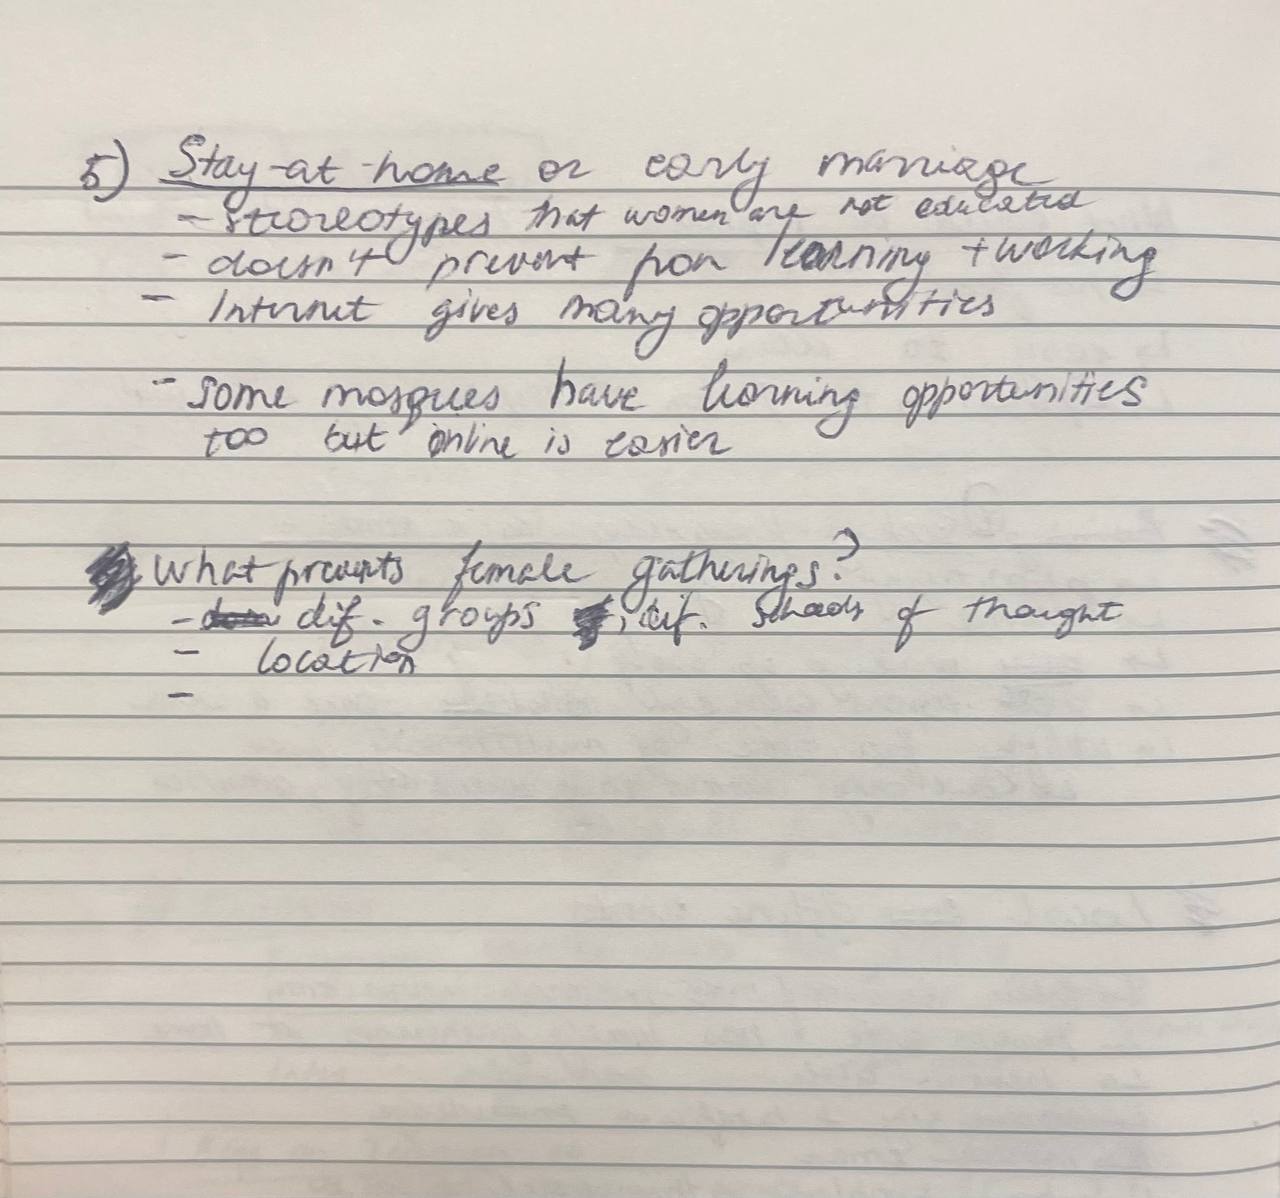 5) Stay-at-home or early marriage
- Stereotypes that women are not educated
- doesn't prevent from learning + working
- Internet gives many opportunities
- some mosques have learning opportunities
too but online is easier
What prevents female gatherings?
- dif. groups, dif. schools of thought
- location
-